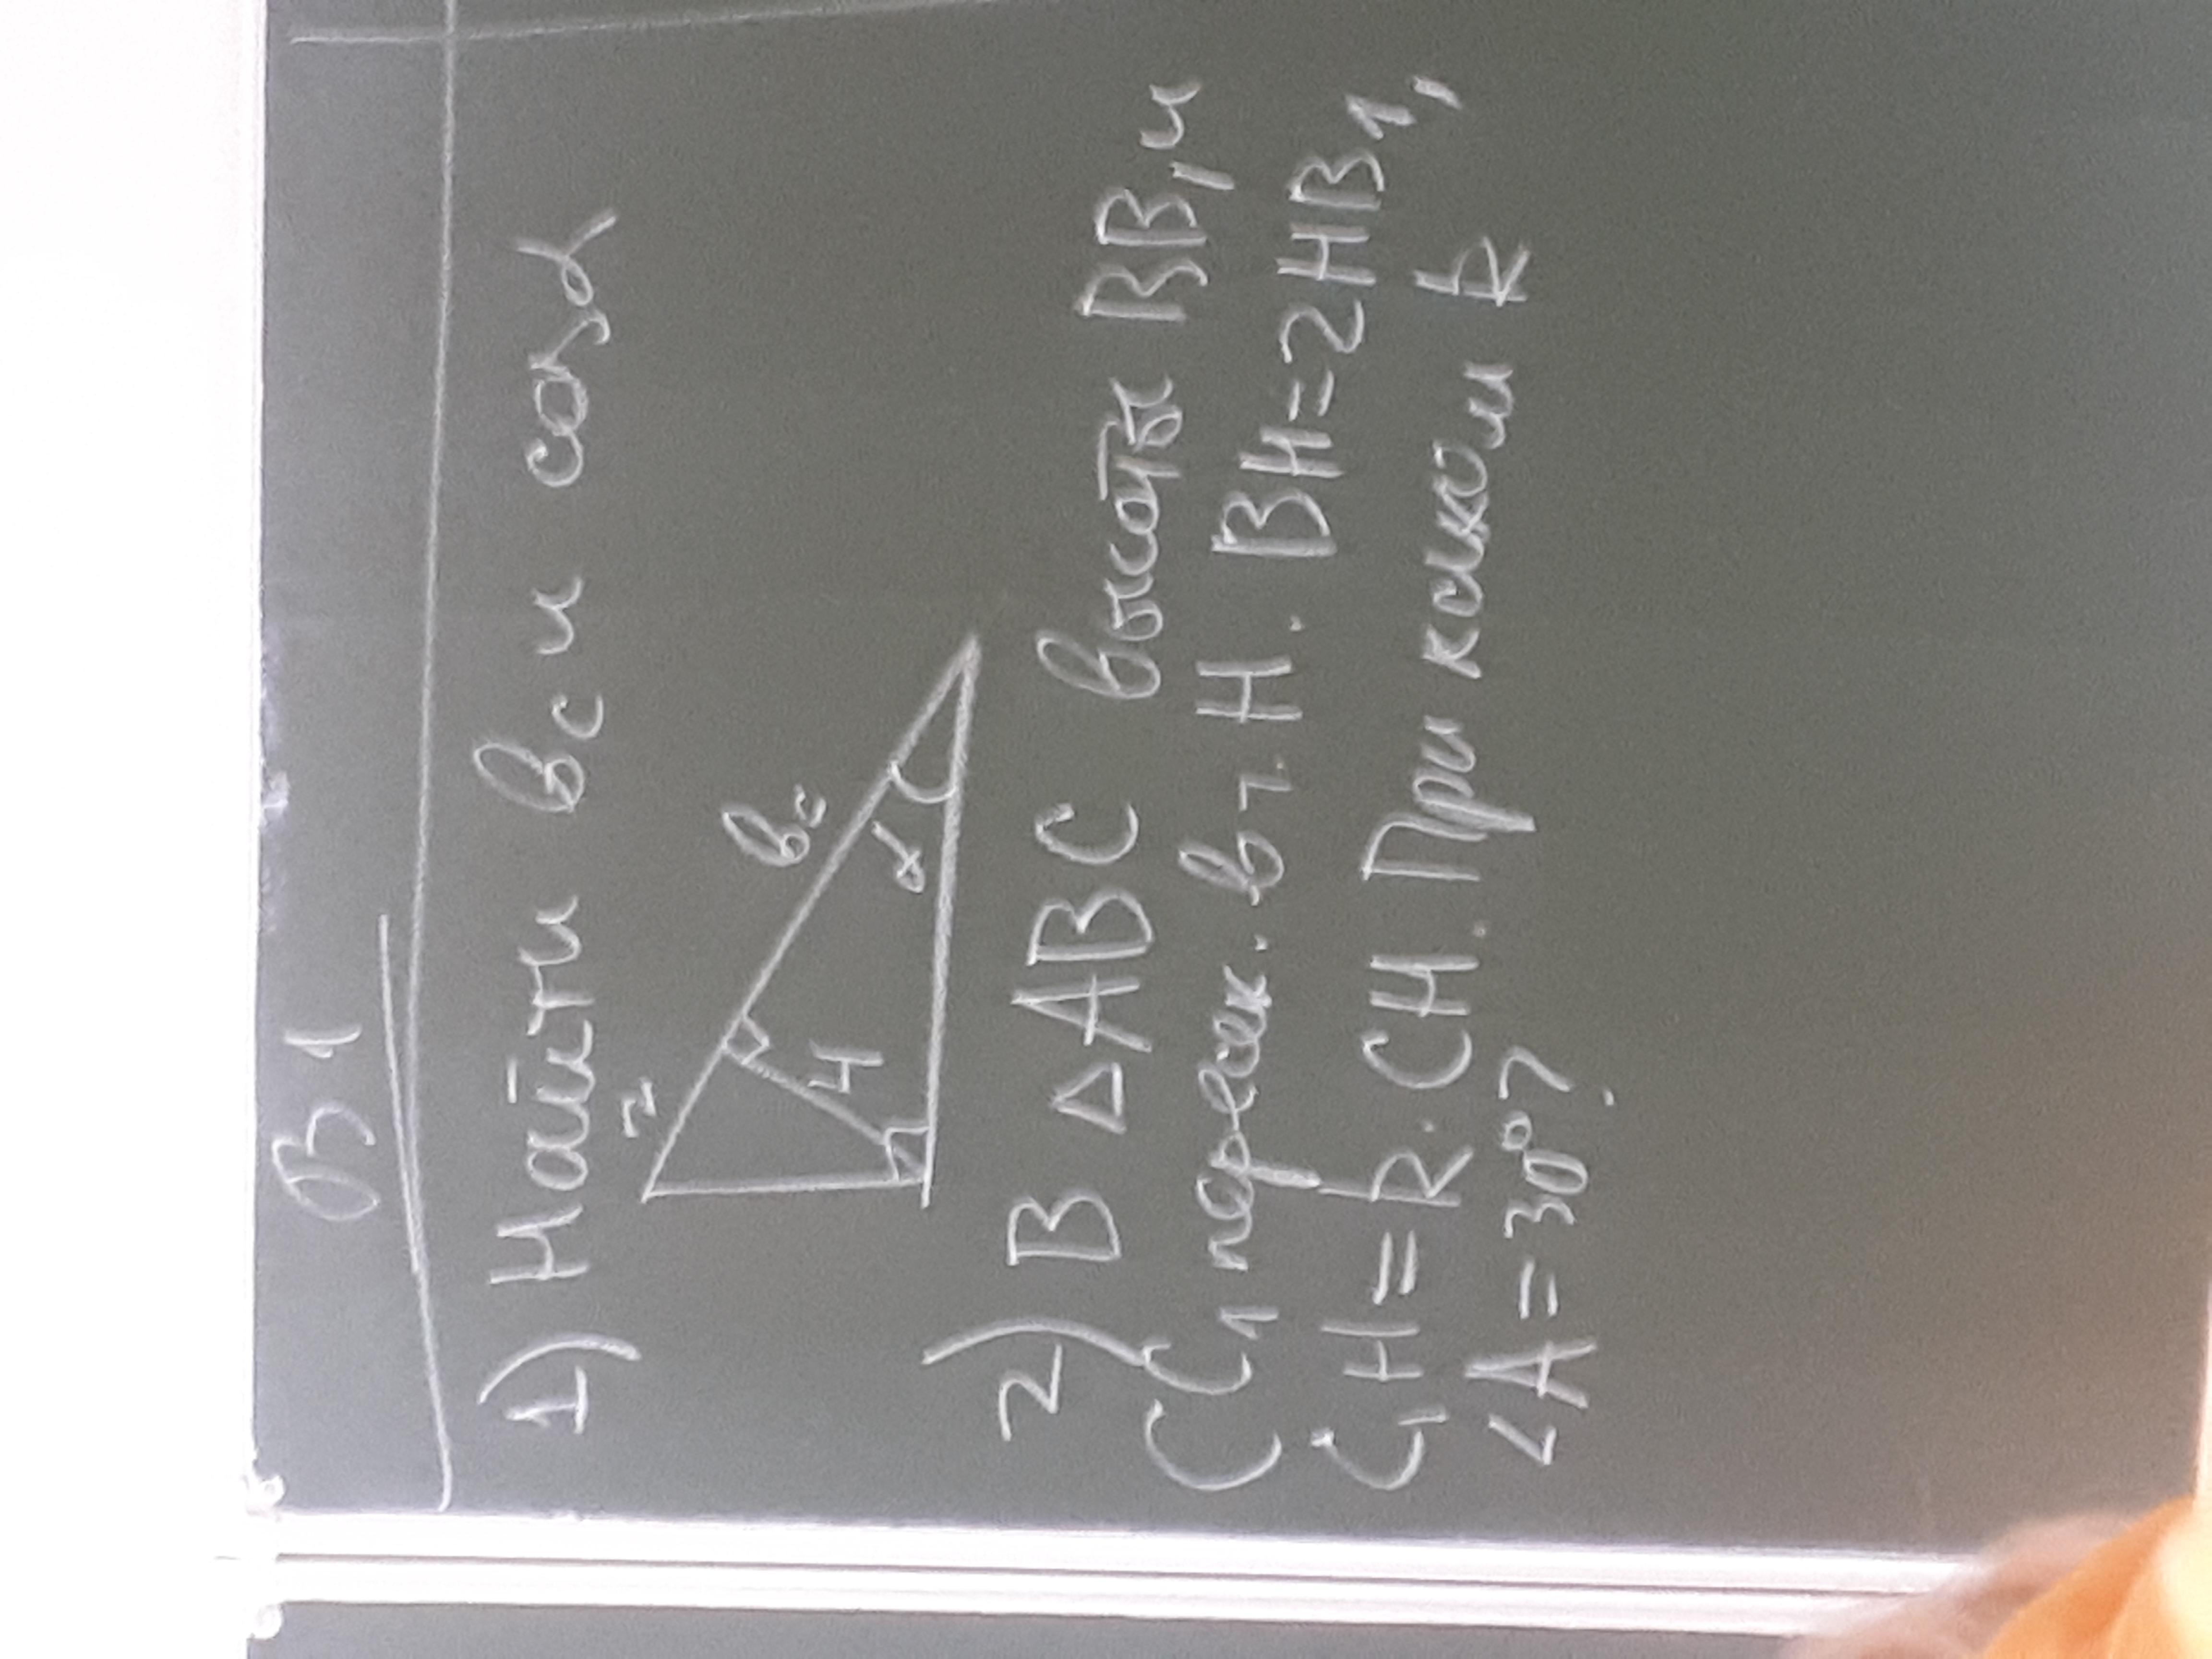 В 1
1) Найти bc и cosα
2
bc
4
α
2) В △ABC высоты BB₁ и
CC₁ пересек. в т. H. BH=2HB₁,
C₁H=k·CH. При каком k
∠A=30°?